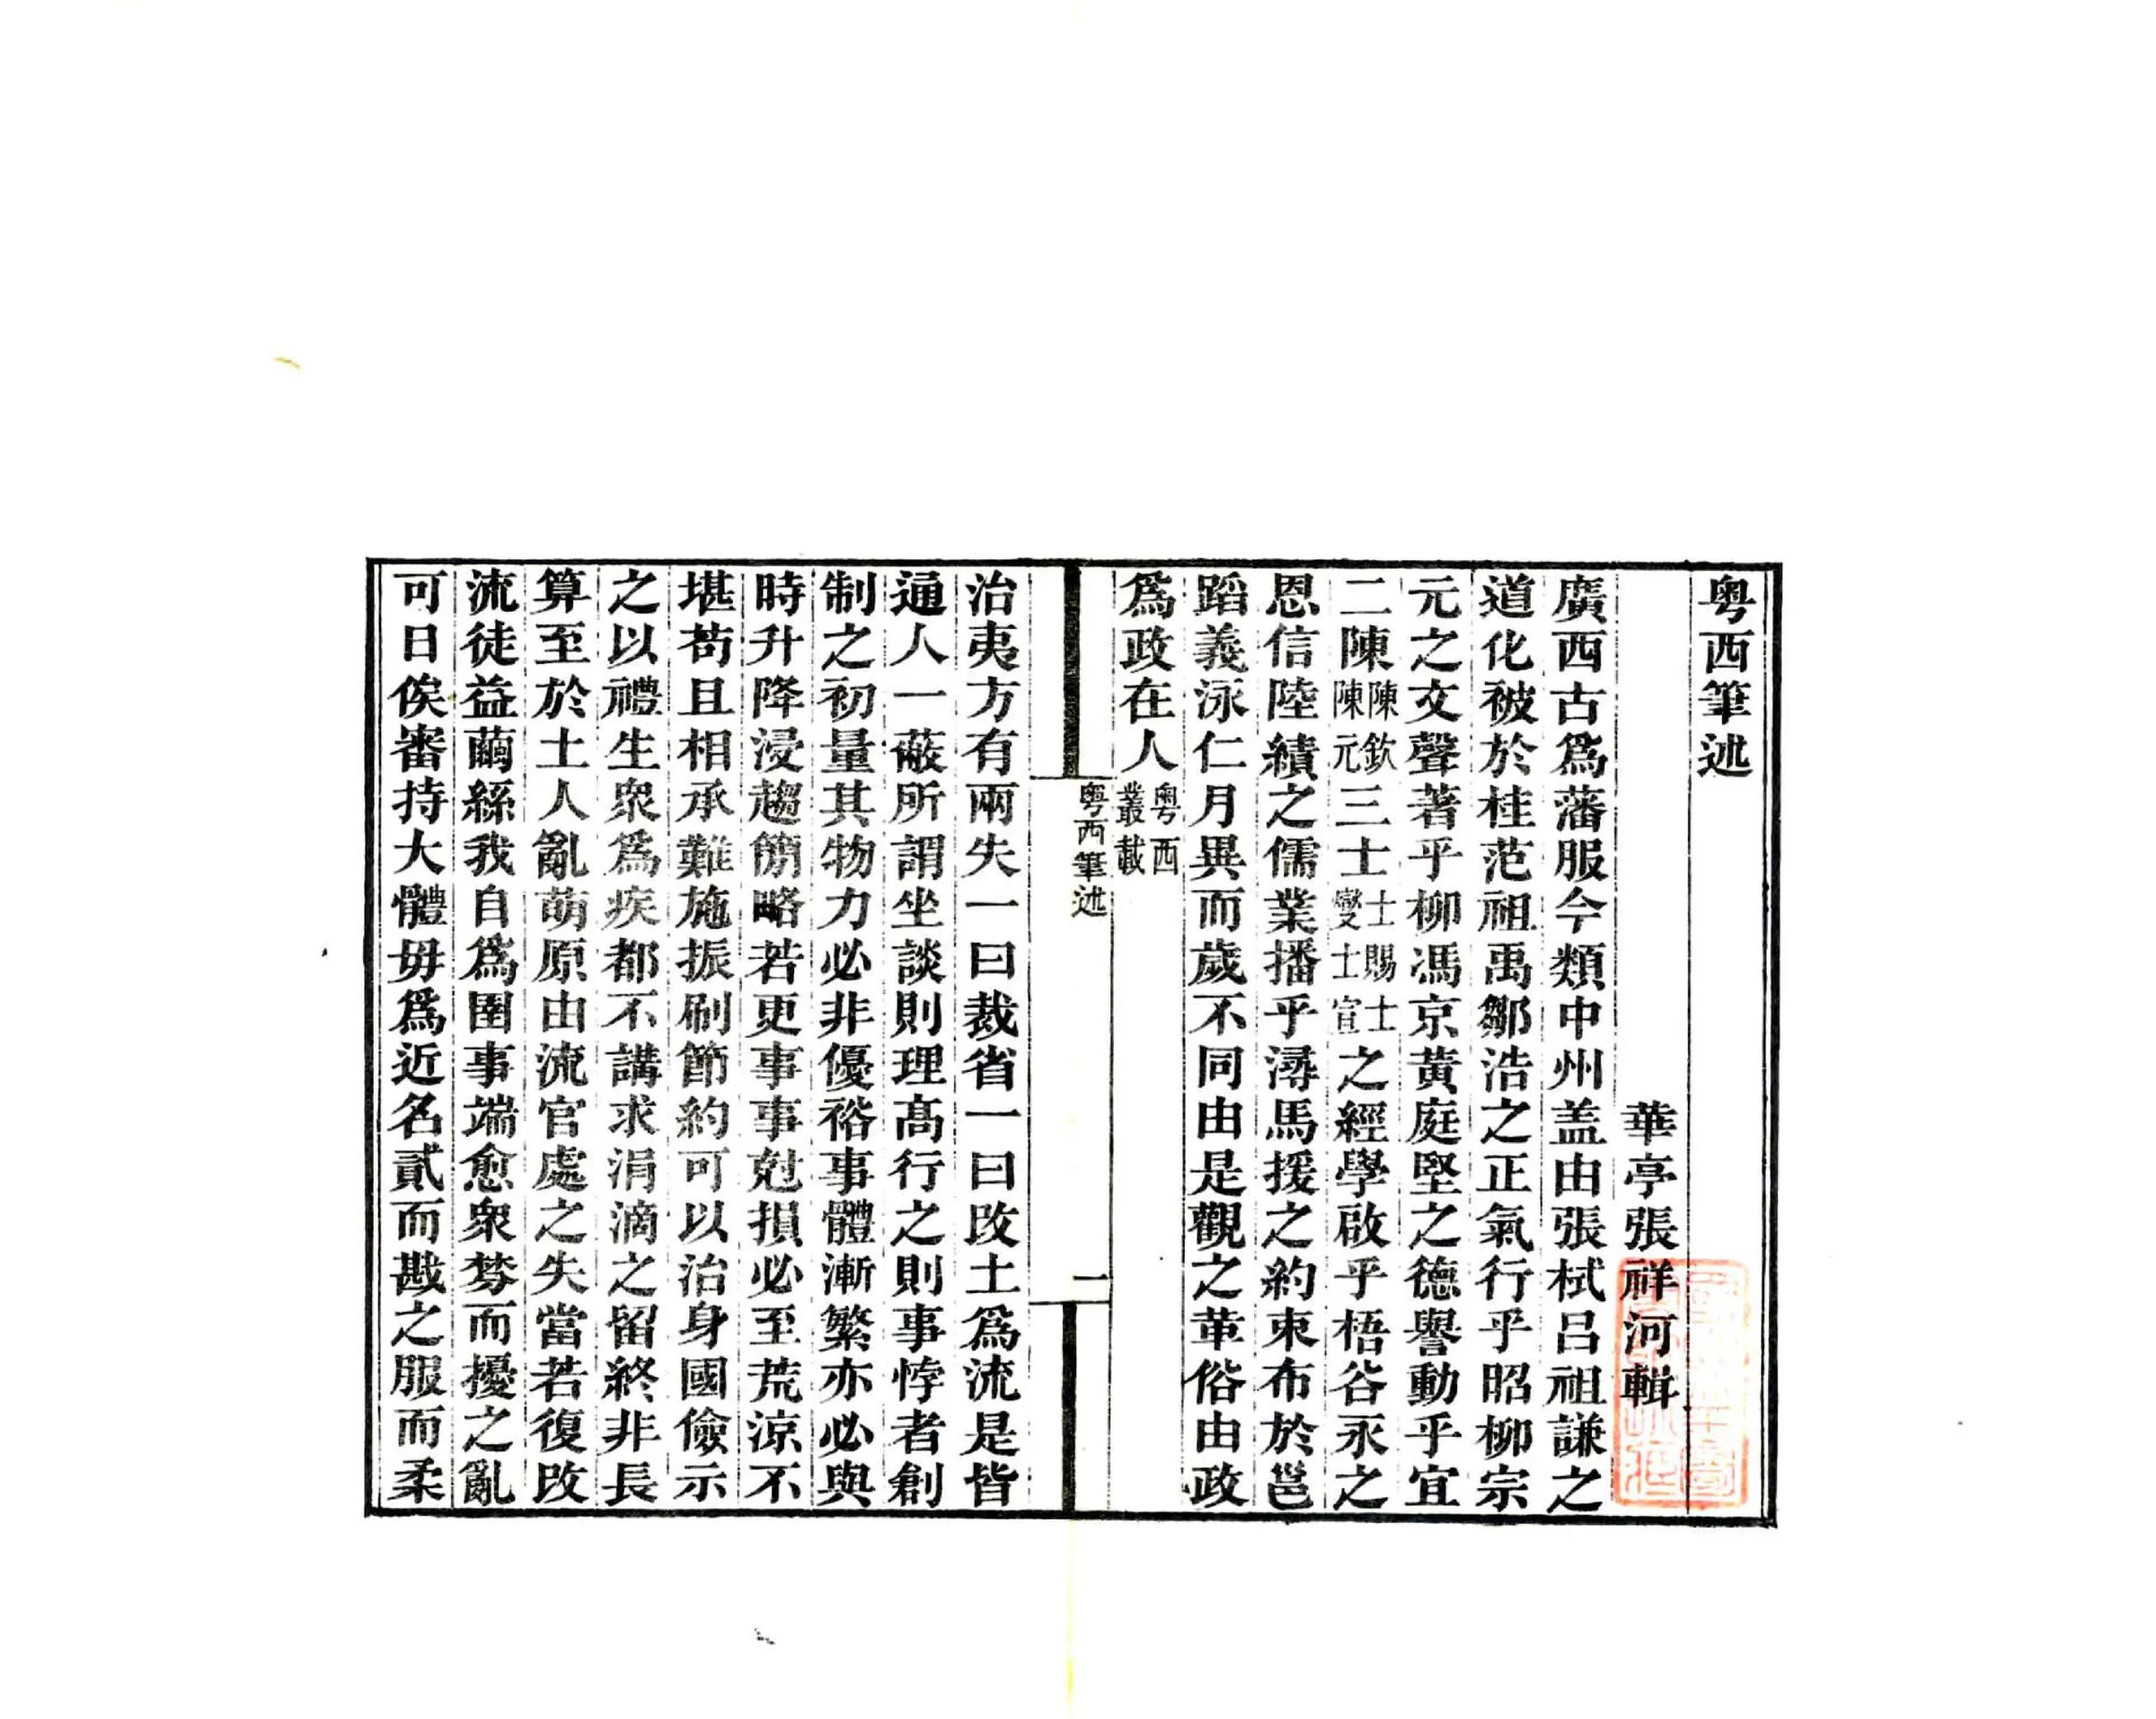 粤西筆述
華亭張祥河輯
廣西古爲藩服今類中州盖由張栻呂祖謙之
道化被於桂范祖禹鄒浩之正氣行乎昭柳宗
元之文聲著乎柳馮京黃庭堅之德譽動乎宜
二陳陳欽陳元三士士燮士賜士宣之經學啟乎梧谷永之
恩信陸績之儒業播乎潯馬援之約束布於邕
蹈義泳仁月異而歲不同由是觀之革俗由政
爲政在人粵西叢載
粤西筆述
一
治夷方有兩失一曰裁省一曰改土爲流是皆
通人一蔽所謂坐談則理高行之則事悖者創
制之初量其物力必非優裕事體漸繁亦必與
時升降浸趨簡略若更事事尅損必至荒涼不
堪苟且相承難施振刷節約可以治身國儉示
之以禮生衆爲疾都不講求涓滴之留終非長
算至於土人亂萌原由流官處之失當若復改
流徒益繭絲我自爲圉事端愈衆棼而擾之亂
可日俟審持大體毋爲近名貳而戡之服而柔